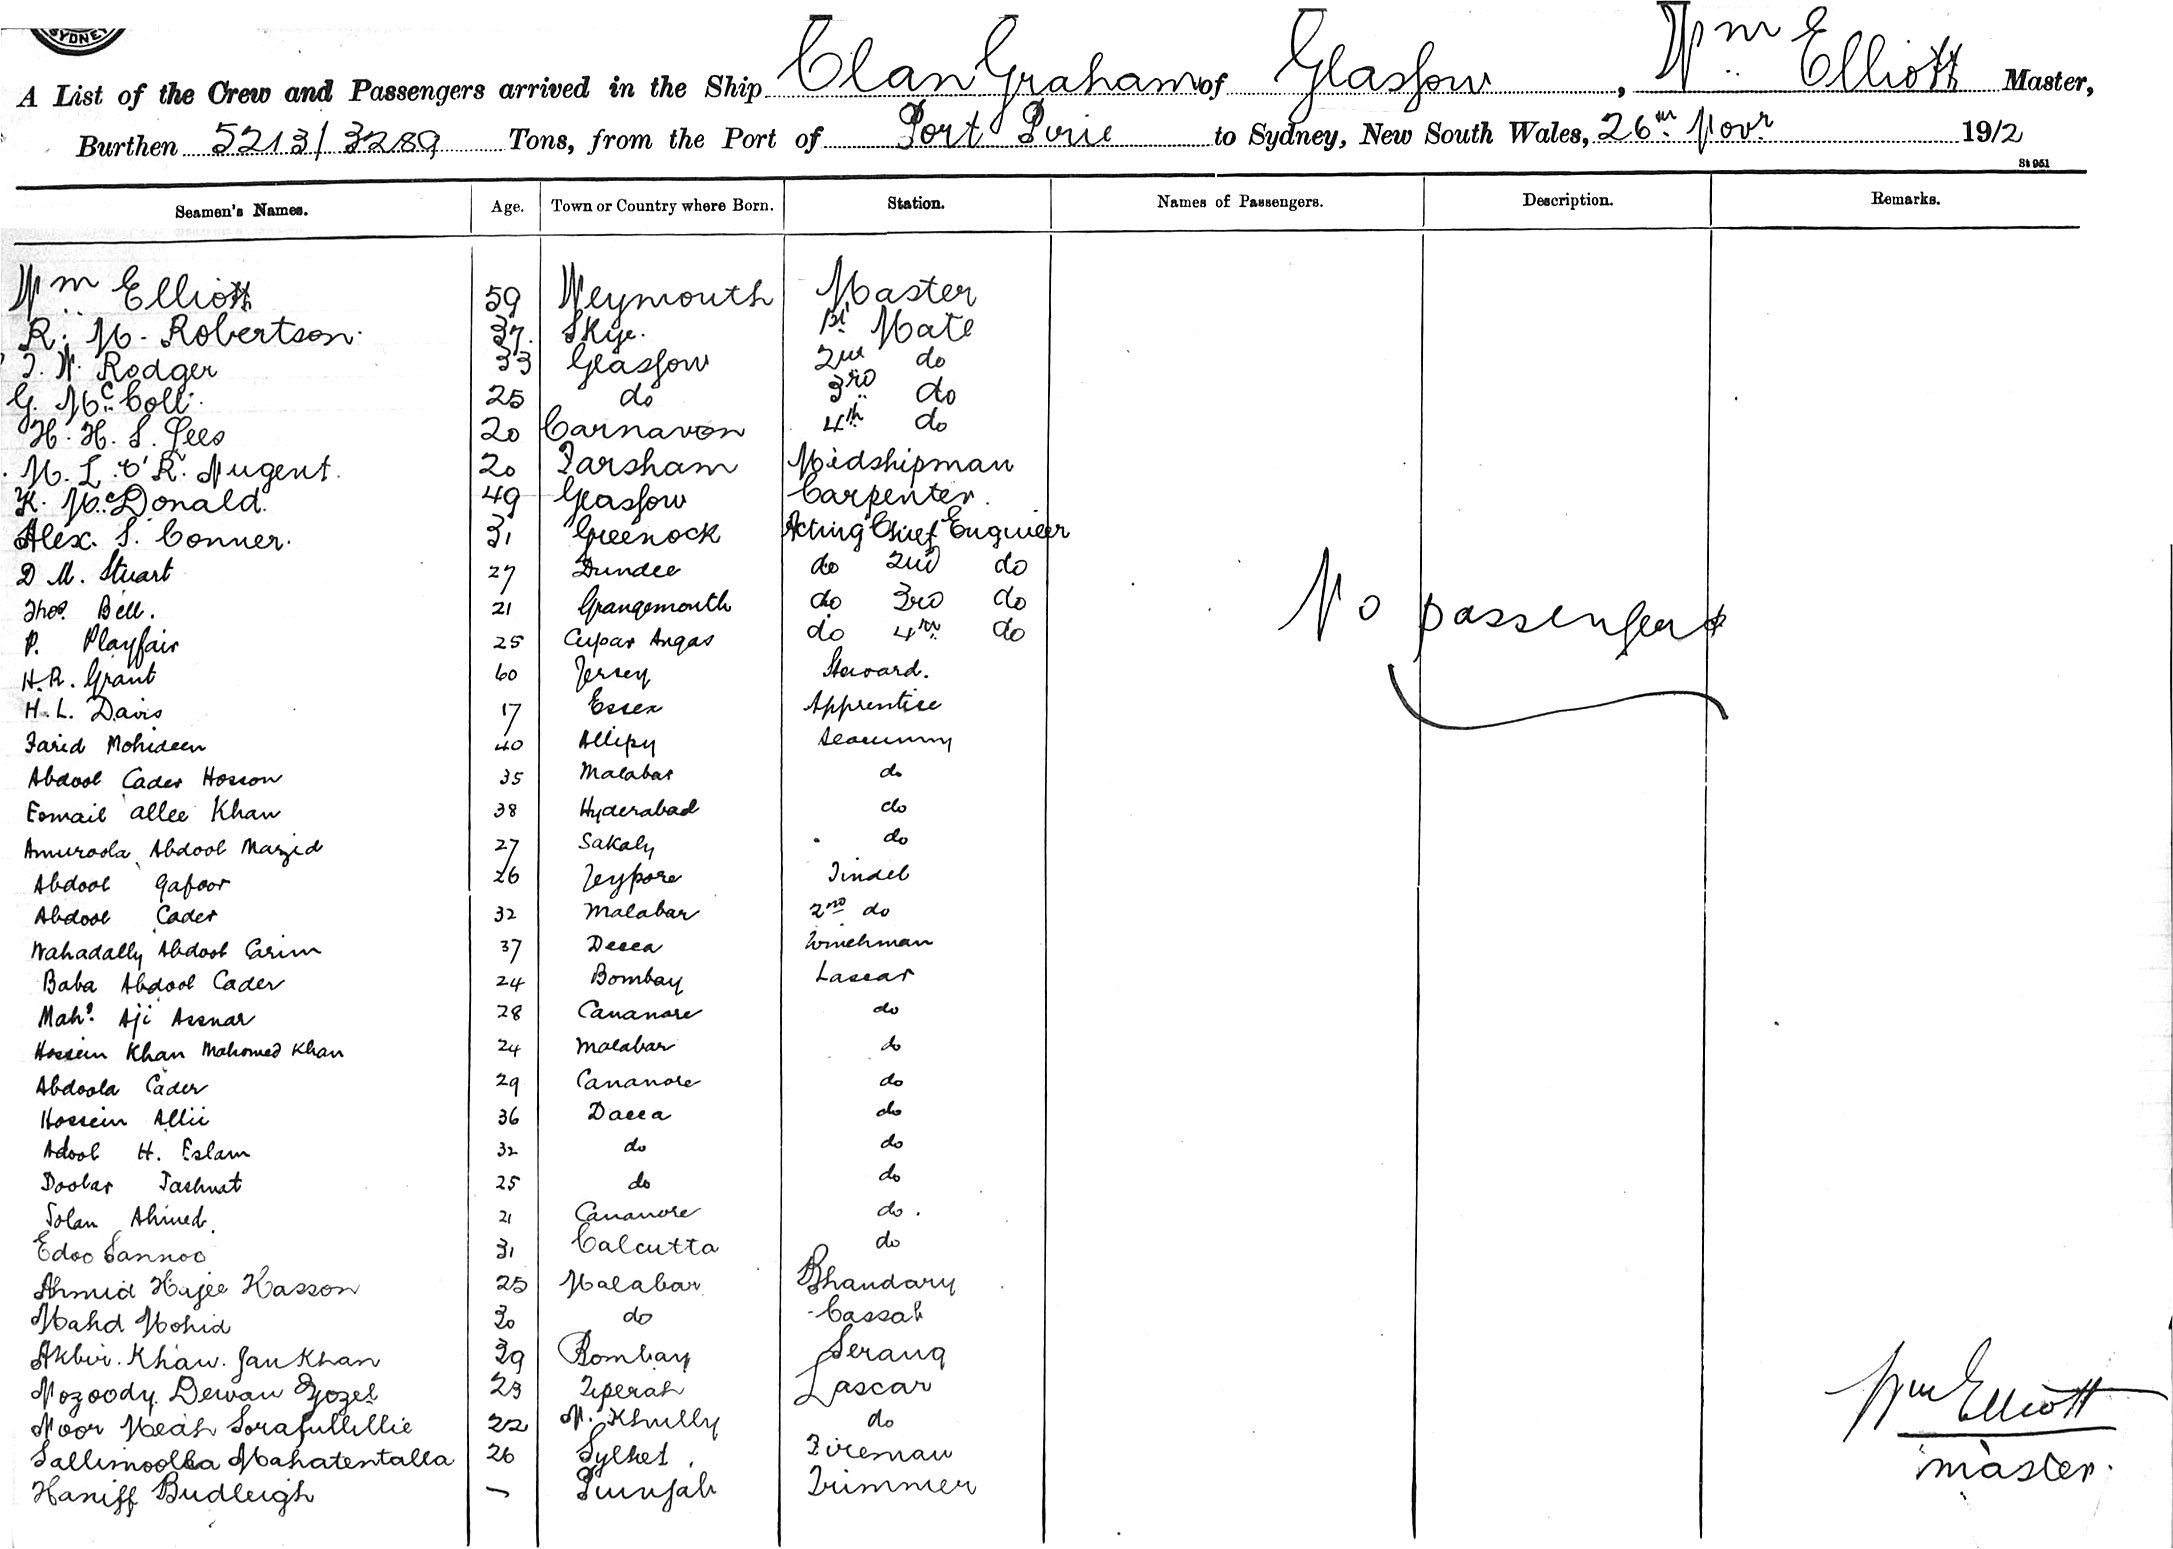 SYDNEY
A List of the Crew and Passengers arrived in the Ship Clan Graham of Glasgow, Wm Elliott Master,
Burthen 5213/3289 Tons, from the Port of Port Pirie to Sydney, New South Wales, 26th Novr 1912
St 951
Seamen's Names. Age. Town or Country where Born. Station. Names of Passengers. Description. Remarks.
Wm Elliott 59 Weymouth Master
R. M. Robertson 37 Skye. 1st Mate
J. W. Rodger 33 Glasgow 2nd do
G. McColl 25 do 3rd do
H. H. S. Lees 20 Carnavon 4th do
M. L. O'R. Nugent. 20 Farsham Midshipman
K. McDonald. 49 Glasgow Carpenter.
Alex. S. Conner. 31 Greenock Acting Chief Engineer
D M. Stuart 27 Dundee do 2nd do
Thos. Bell. 21 Grangemouth do 3rd do
No passengers
P. Playfair 25 Cupar Angas do 4th do
H.R. Grant 60 Jersey Steward.
H. L. Davis 17 Essex Apprentice
Farid Mohideen 40 Allipy Seacunny
Abdool Cader Hosson 35 Malabar do
Esmail allee Khan 38 Hyderabad do
Amuroola Abdool Mazid 27 Sakaly do
Abdool Gafoor 26 Jeypore Tindel
Abdool Cader 32 Malabar 2nd do
Wahadally Abdool Carim 37 Decca Winchman
Baba Abdool Cader 24 Bombay Lascar
Mahd. Aji Assnar 28 Cananore do
Hossein Khan Mahomed Khan 24 Malabar do
Abdoola Cader 29 Cananore do
Hossein Allii 36 Dacca do
Adool H. Eslam 32 do do
Doolar Tashnat 25 do do
Solan Ahmed. 21 Cananore do.
Edoo Sannoo 31 Calcutta do
Ahmid Hajee Hasson 25 Malabar Bhandary
Mahd Mohid 30 do Cassab
Akbir. Khan. Jan Khan 39 Bombay Serang
Mozoody Dewan Gozel 23 Tiperah Lascar
Wm Elliott
Noor Meah Sorafullillie 22 N. Khully do
Sallimoolla Mahatentalla 26 Sylhet Fireman
master.
Haniff Budleigh – Punjab Trimmer